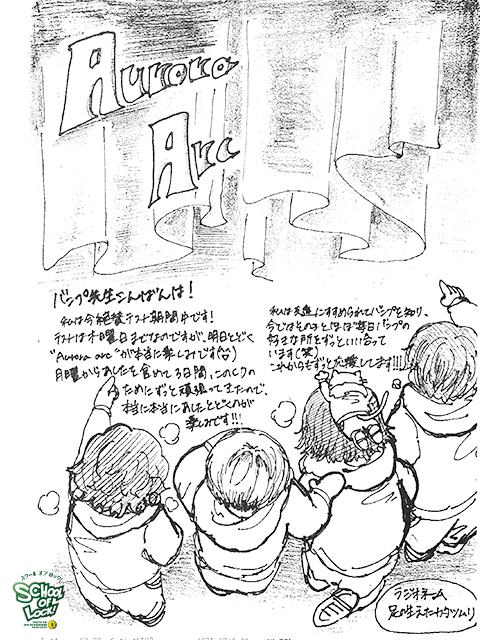 Aurora
Arc
バンプ先生こんばんは!
私は今絶賛テスト期間中です!
テストは木曜日までなのですが、明日とどく
"Aurora arc"が本当に楽しみです(笑)
月曜からあしたを含めて3日間、この
ためにずっと頑張ってきたので、
本当に本当にあしたとどくのが
楽しみです!!!
私は友達にすすめられてバンプを知り、
今ではその子とほぼ毎日バンプの
好きな所をずっといい合って
います(笑)
これからもずっと応援してます!!!
スクール オブ ロック!
SCHOOL
OF
LOCK!
ラジオネーム
足の生えたカタツムリ